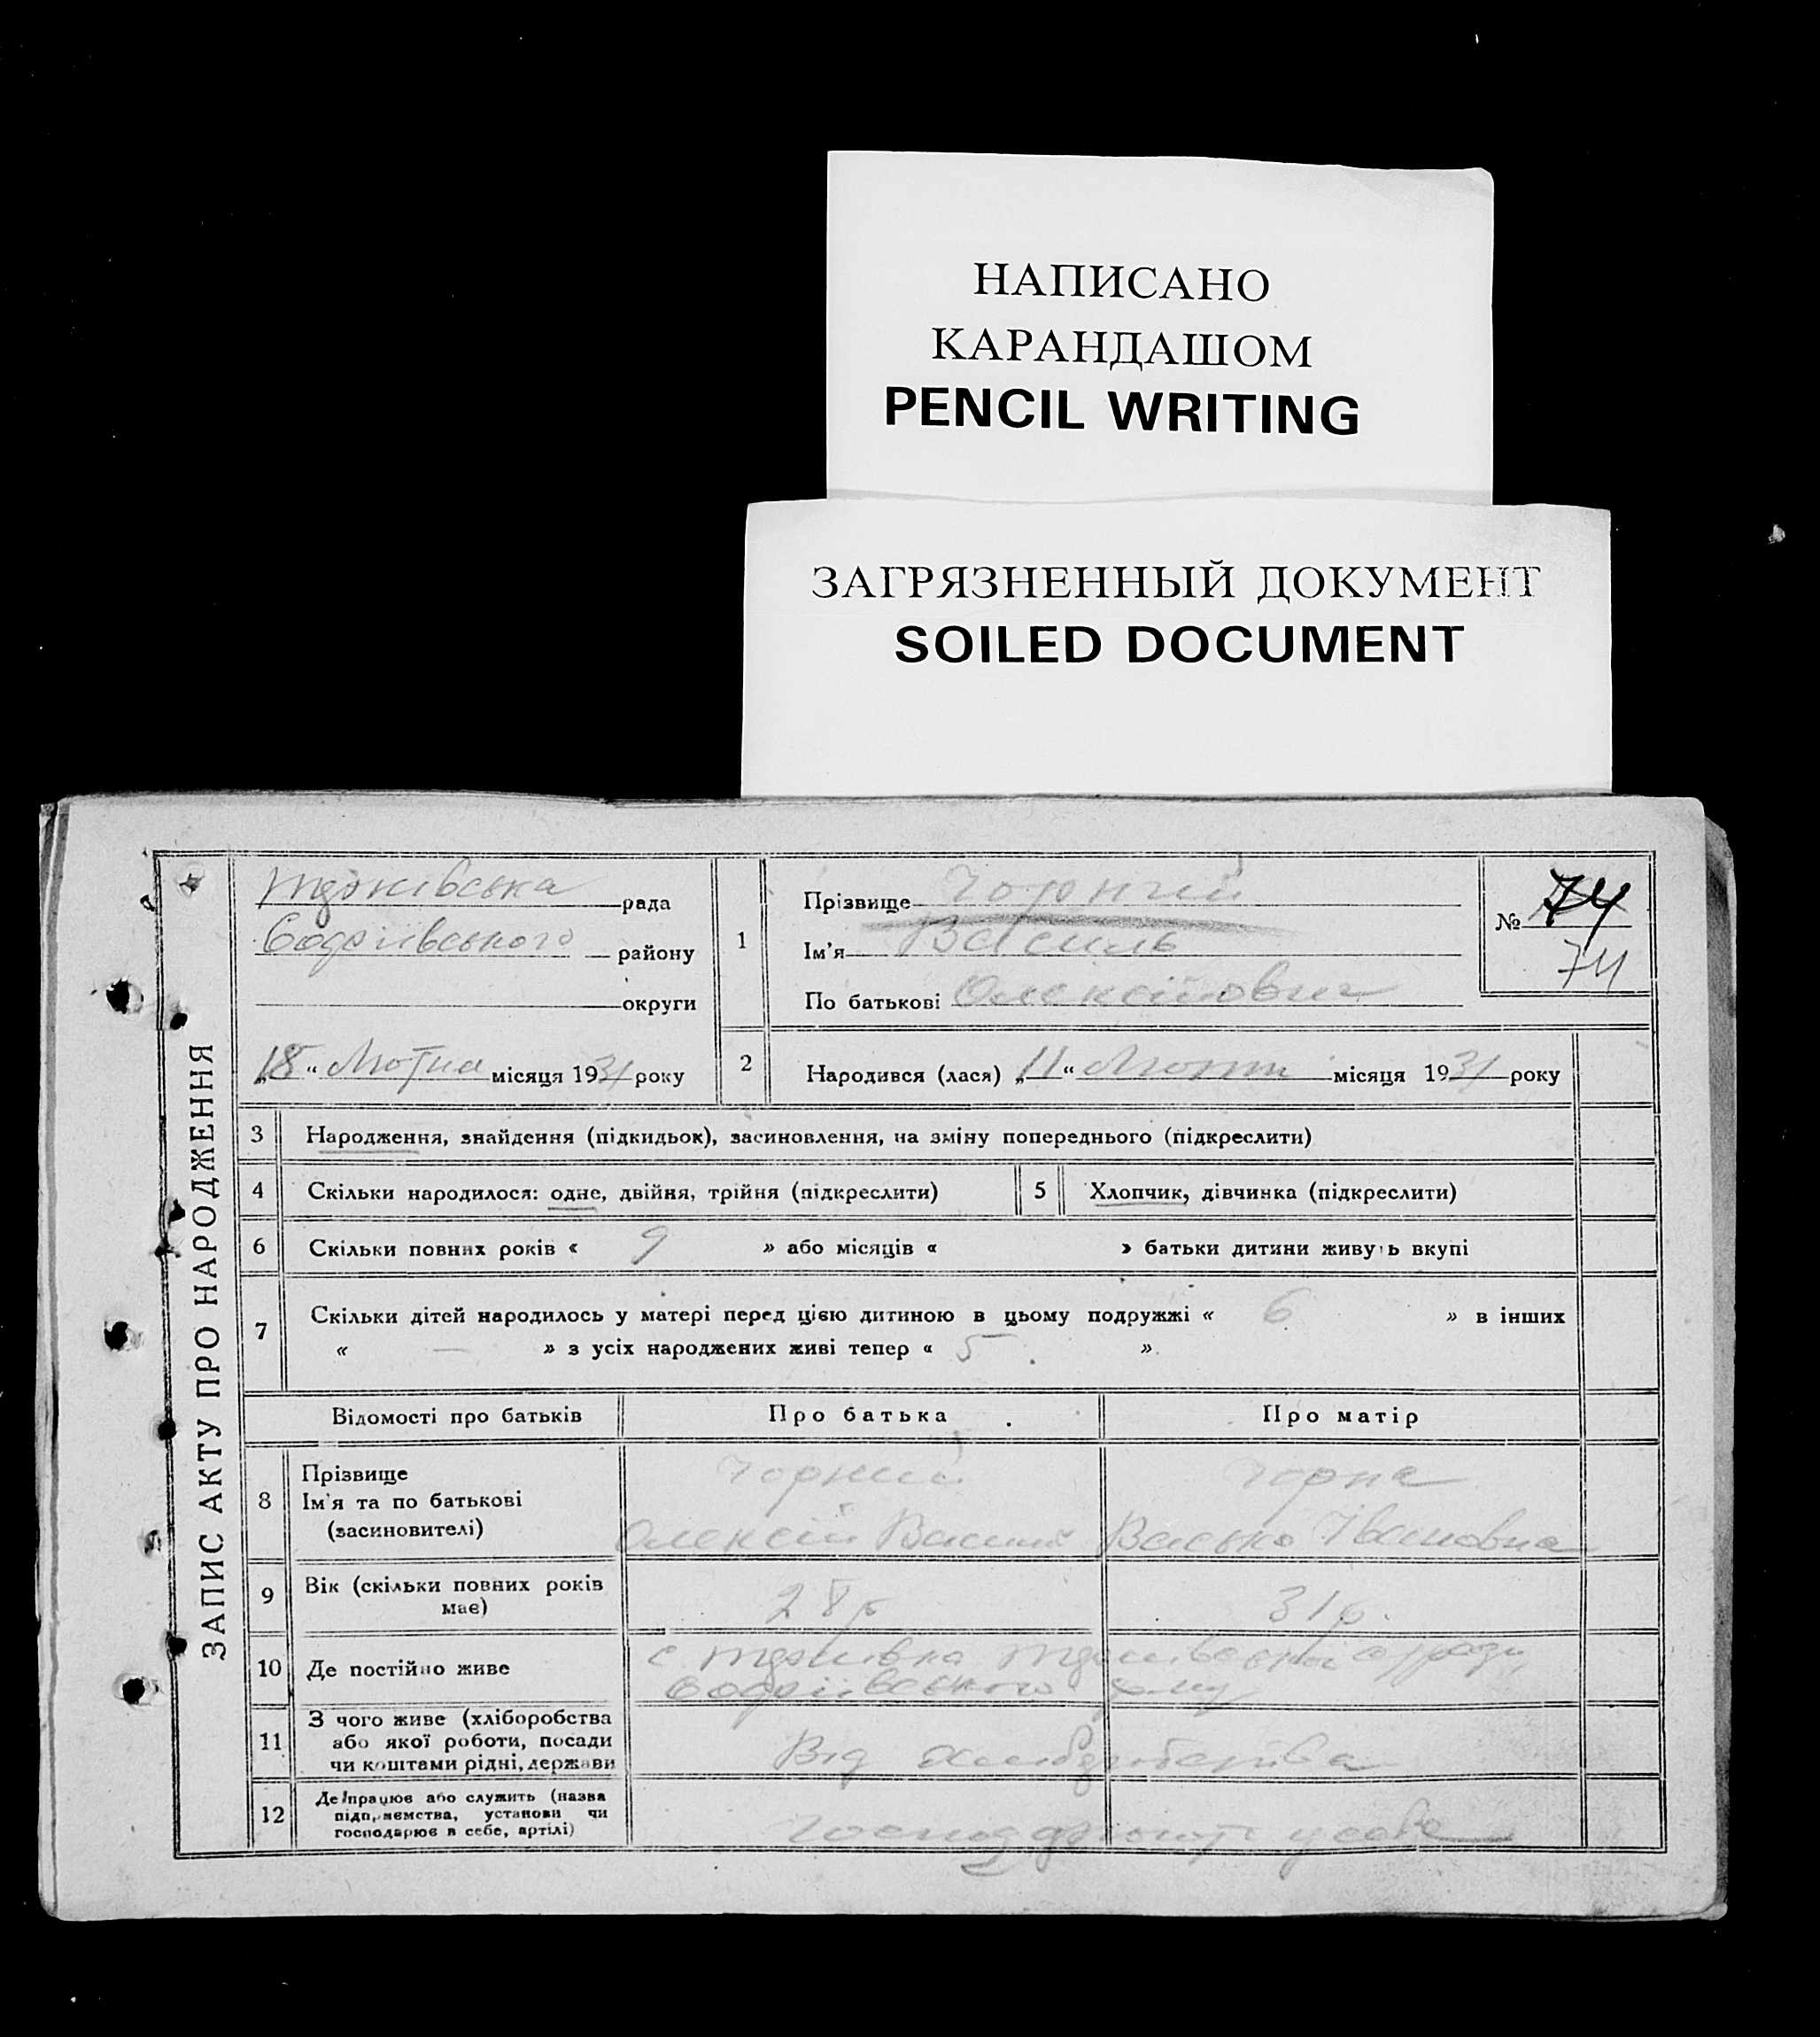 НАПИСАНО
КАРАНДАШОМ
PENCIL WRITING
ЗАГРЯЗНЕННЫЙ ДОКУМЕНТ
SOILED DOCUMENT
ЗАПИС АКТУ ПРО НАРОДЖЕННЯ
рада
району
округи
„18“ Лютня місяця 1931 року
1
Прізвище Чорний
Ім'я Василь
По батькові Олексійович
№ 74
74
2 Народився (лася) „11“ місяця 1931 року
3 Народження, знайдення (підкидьок), засиновлення, на зміну попереднього (підкреслити)
4 Скільки народилося: одне, двійня, трійня (підкреслити) 5 Хлопчик, дівчинка (підкреслити)
6 Скільки повних років « 9 » або місяців « » батьки дитини живуть вкупі
7 Скільки дітей народилось у матері перед цією дитиною в цьому подружжі « 6 » в інших
« — » з усіх народжених живі тепер « 5 ».
Відомості про батьків Про батька Про матір
8 Прізвище Чорний Чорна
Ім'я та по батькові
(засиновителі) Олексій Івановна
9 Вік (скільки повних років
має) 28 р 31 р.
10 Де постійно живе с
11 З чого живе (хліборобства
або якої роботи, посади
чи коштами рідні, держави
Від
12 Де працює або служить (назва
підприємства, установи чи
господарює в себе, артілі)
у себе